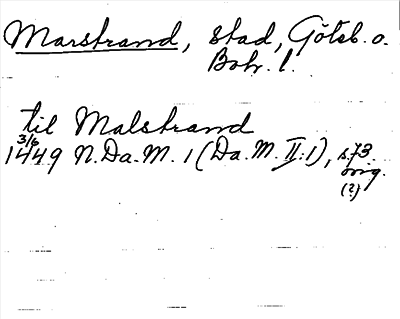 Marstrand, stad, Götsb. o.
Boh. l.
til Malstrand
3/6
1449 N.Da.M. 1 (Da.M. II:1), s.73.
orig.
(?)